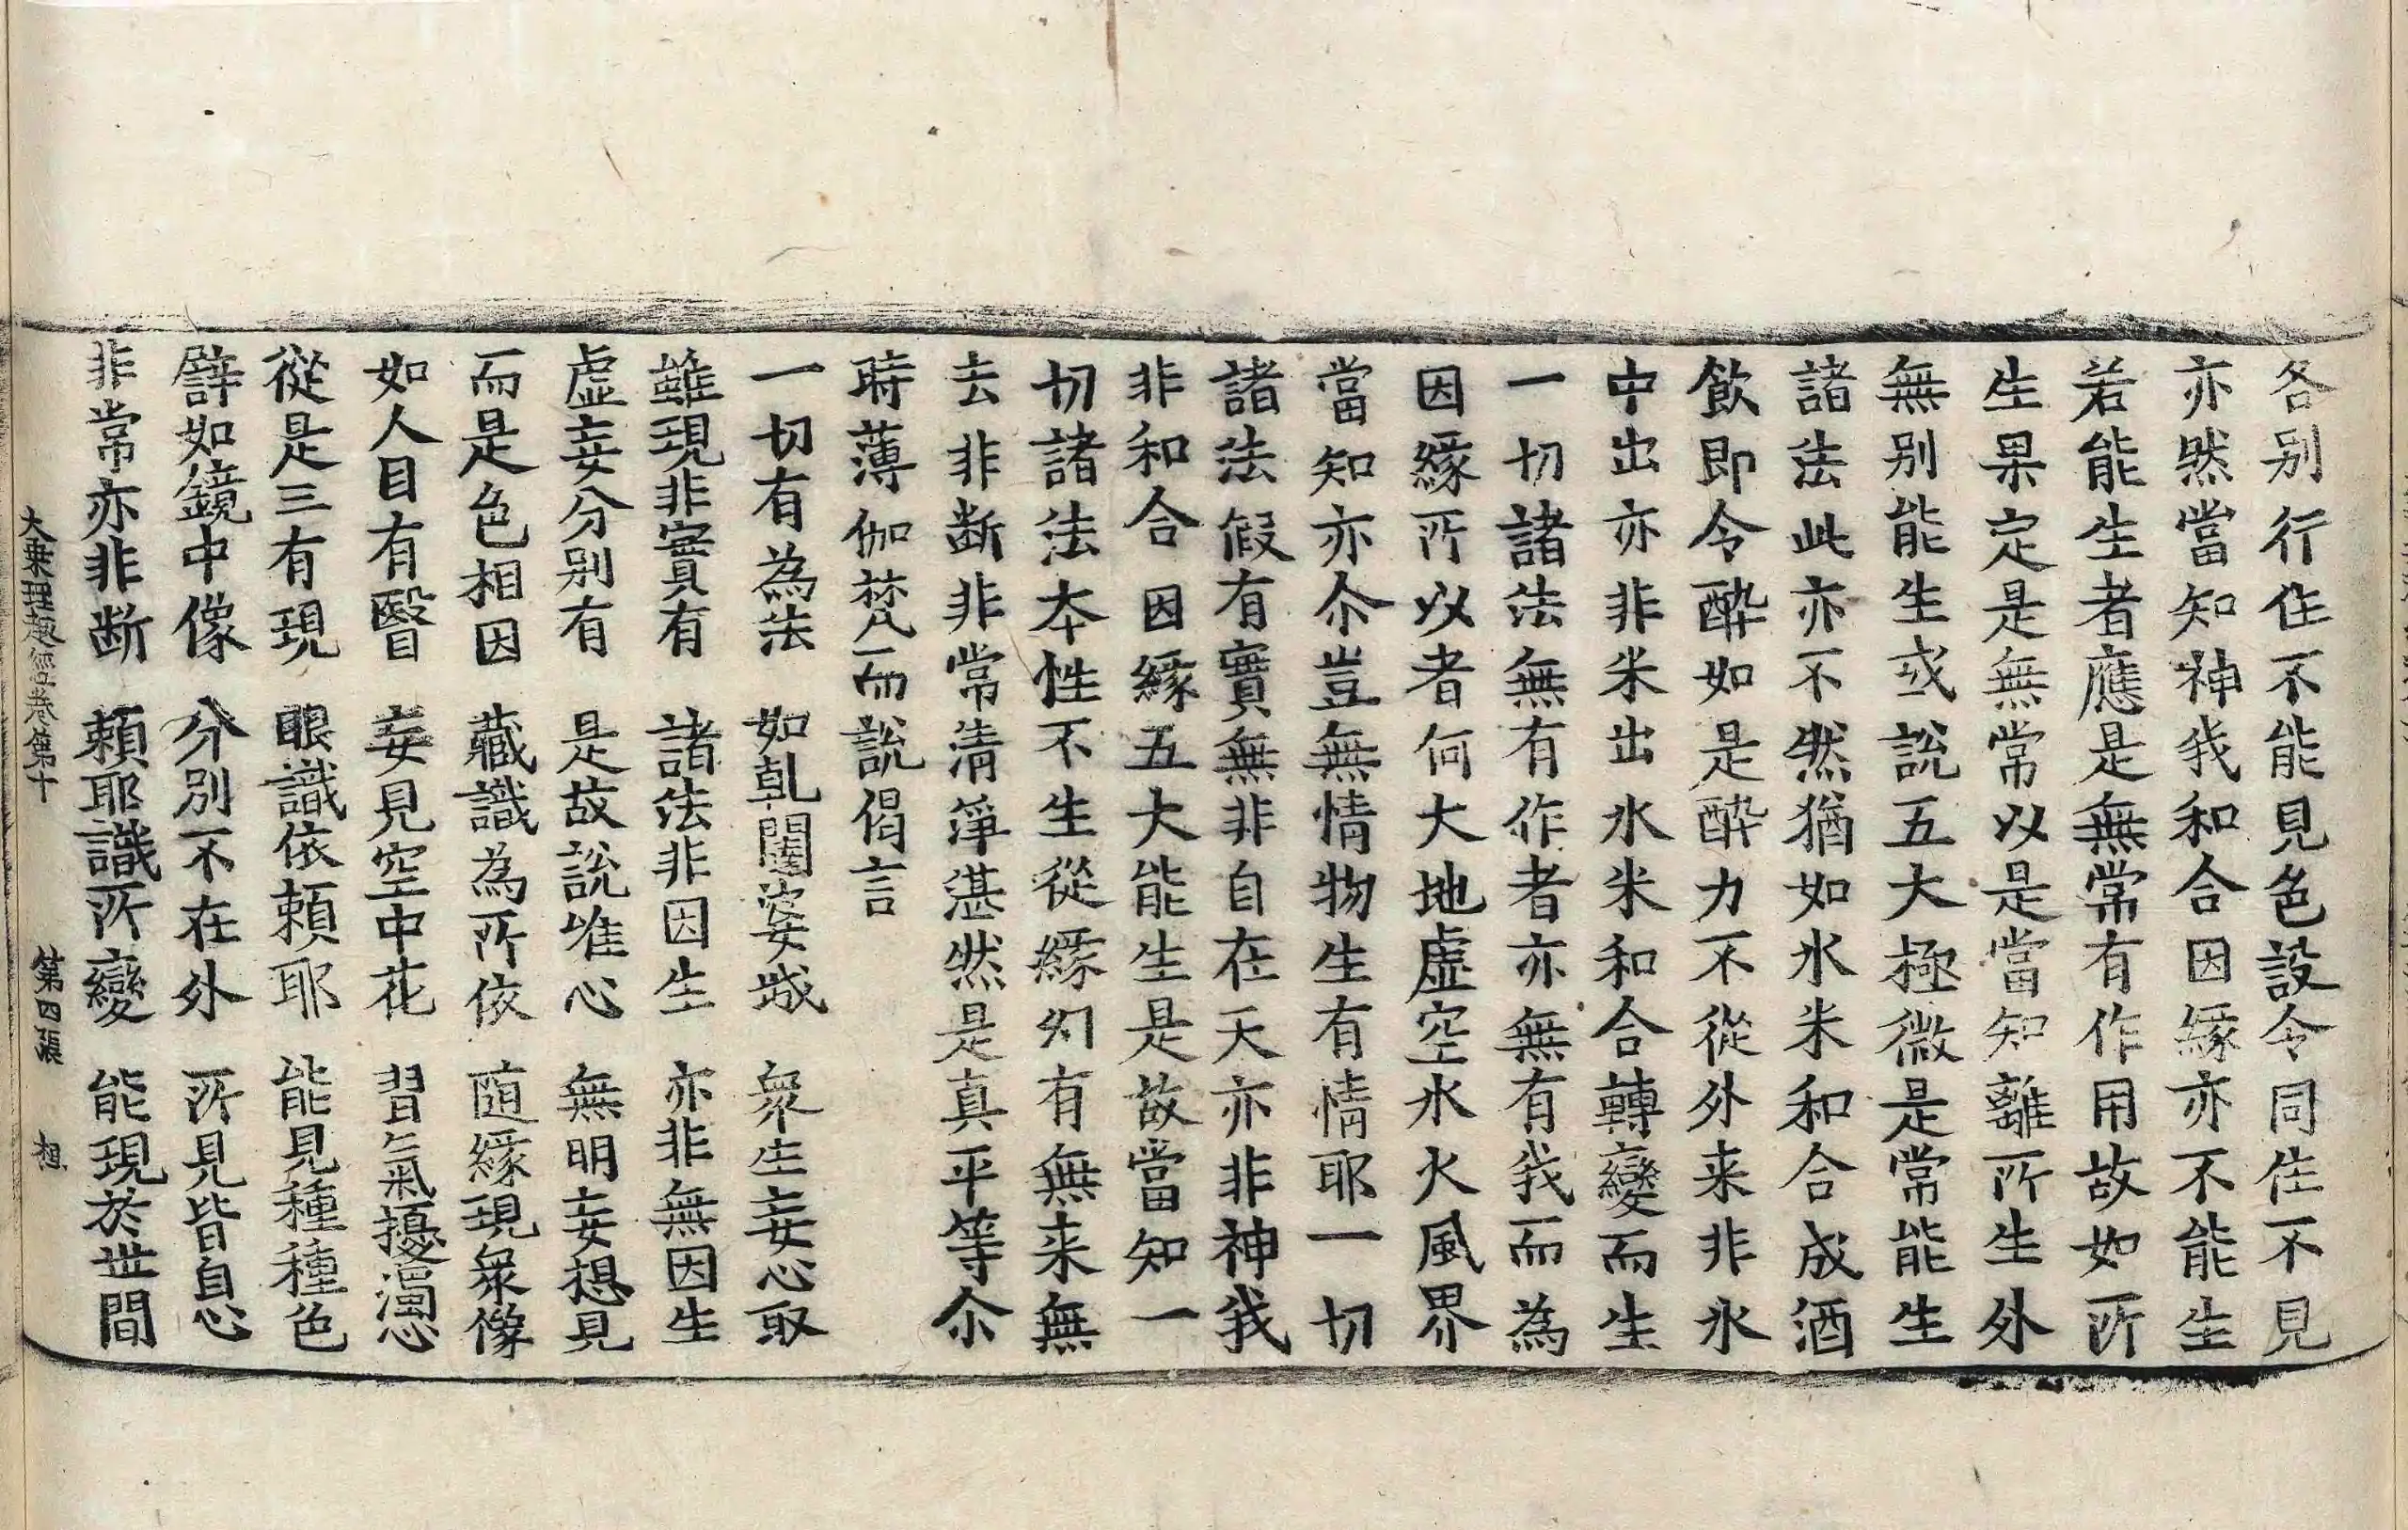 各别行住不能見色設令同住不見
亦然當知神我和合因緣亦不能生
若能生者應是無常有作用故如所
生果定是無常以是當知離所生外
無别能生或說五大極微是常能生
諸法此亦不然猶如水米和合成酒
飲即令醉如是醉力不從外来非水
中出亦非米出水米和合轉變而生
一切諸法無有作者亦無有我而為
因緣所以者何大地虛空水火風界
當知亦尒豈無情物生有情耶一切
諸法假有實無非自在天亦非神我
非和合因緣五大能生是故當知一
切諸法本性不生從緣幻有無来無
去非断非常清淨湛然是真平等尒
時薄伽梵而說偈言
一切有為法　如乹闥婆城　衆生妄心取
雖現非實有　諸法非因生　亦非無因生
虛妄分别有　是故說唯心　無明妄想見
而是色相因　藏識為所依　随緣現衆像
如人目有翳　妄見空中花　習氣擾濁心
從是三有現　眼識依賴耶　能見種種色
譬如鏡中像　分別不在外　所見皆自心
非常亦非断　賴耶識所變　能現於世間
大乗理趣經卷第十　第四張　想